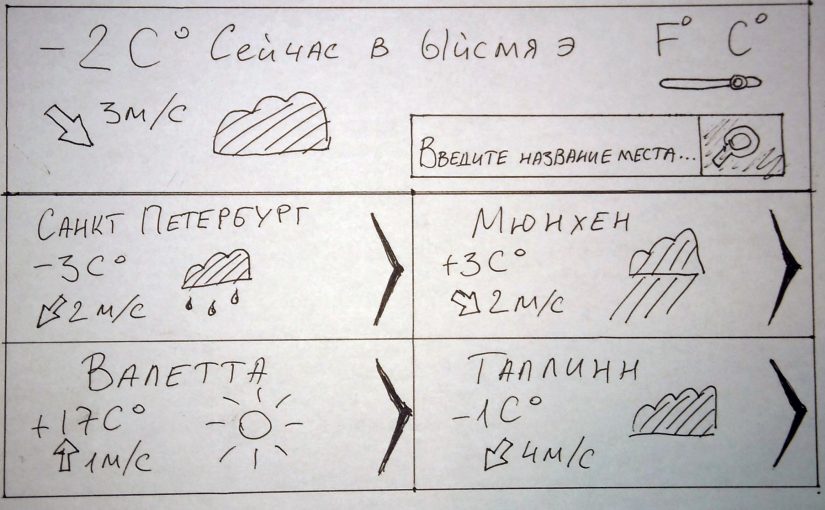 -2 C° Сейчас в Ыйсмяэ
F° C°
3 м/с
Введите название места...
Санкт Петербург
-3 C°
2 м/с
Мюнхен
+3 C°
2 м/с
Валетта
+17 C°
1 м/с
Таллинн
-1 C°
4 м/с